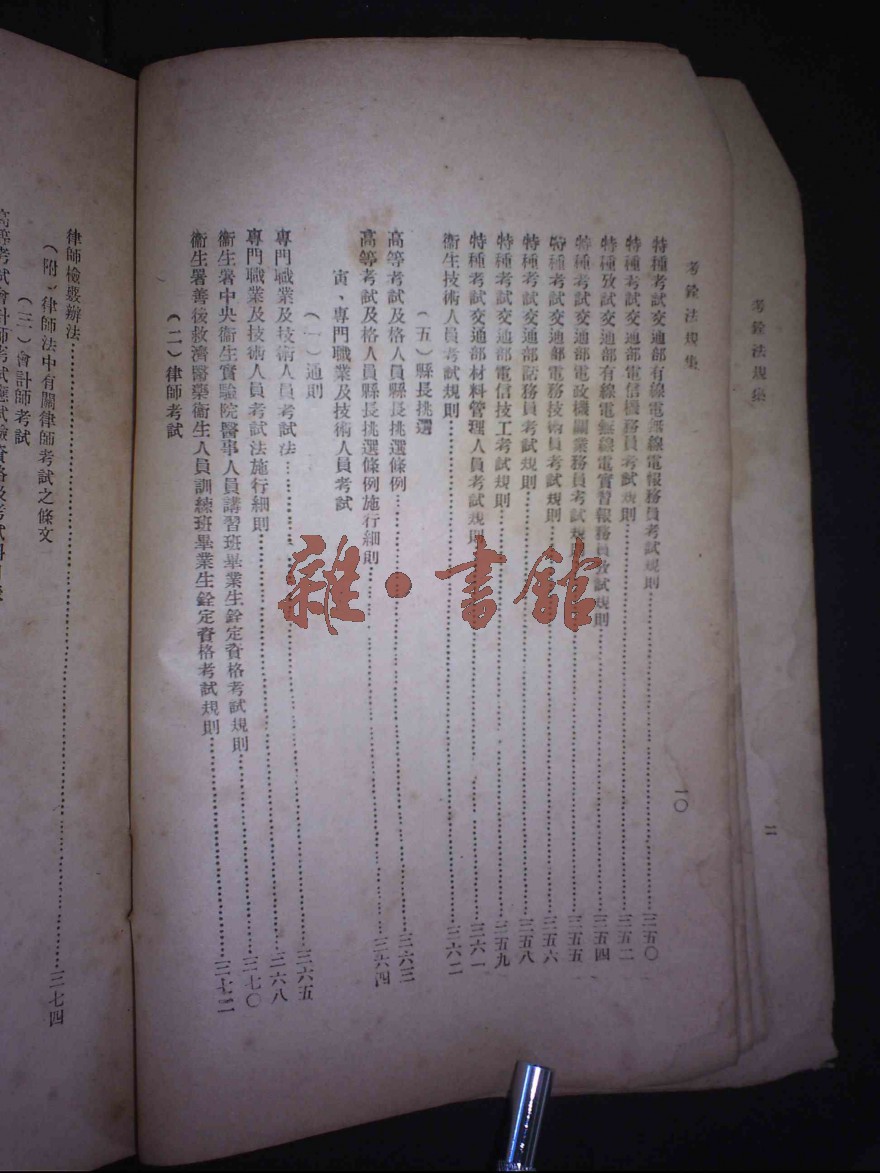 考銓法規集
二
考銓法規集
一〇
特種考試交通部有線電無線電報務員考試規則……三五〇
特種考試交通部電信機務員考試規則……三五二
特種攷試交通部有線電無線電實習報務員攷試規則……三五四
特種考試交通部電政機關業務員考試規則……三五五
特種考試交通部電務技術員考試規則……三五六
特種考試交通部話務員考試規則……三五八
特種考試交通部電信技工考試規則……三五九
特種考試交通部材料管理人員考試規則……三六一
衞生技術人員考試規則……三六二
（五）縣長挑選
高等考試及格人員縣長挑選條例……三六三
高等考試及格人員縣長挑選條例施行細則……三六四
寅、專門職業及技術人員考試
（一）通則
專門職業及技術人員考試法……三六五
專門職業及技術人員考試法施行細則……三六八
衞生署中央衞生實驗院醫事人員講習班畢業生銓定資格考試規則……三七〇
衞生署善後救濟醫藥衞生人員訓練班畢業生銓定資格考試規則……三七二
（二）律師考試
律師檢覈辦法……三七四
（附）律師法中有關律師考試之條文
（三）會計師考試
高等考試會計師考試應試資格及考試科目表
雜·書館